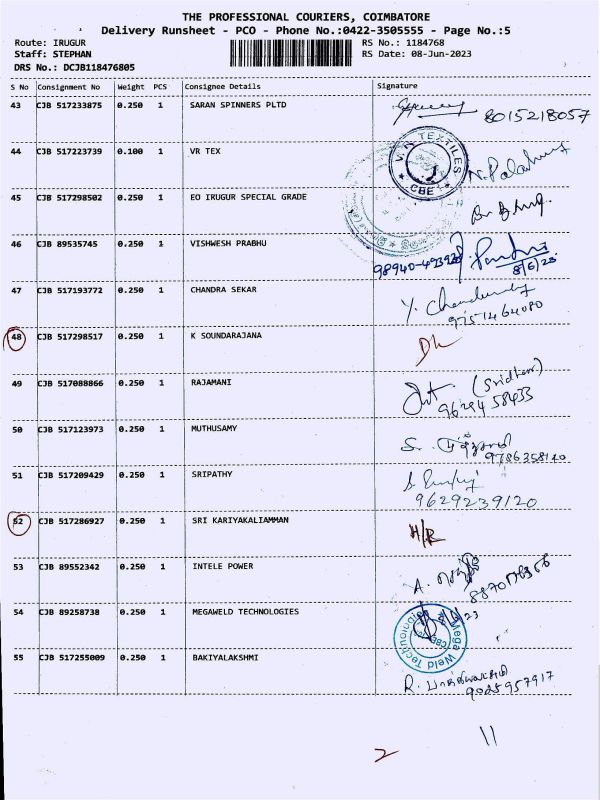 THE PROFESSIONAL COURIERS, COIMBATORE
Delivery Runsheet - PCO - Phone No.:0422-3505555 - Page No.:5
Route: IRUGUR
RS No.: 1184768
Staff: STEPHAN
RS Date: 08-Jun-2023
DRS No.: DCJB118476805
S No Consignment No Weight PCS Consignee Details Signature
43 CJB 517233875 0.250 1 SARAN SPINNERS PLTD 8015218057
44 CJB 517223739 0.100 1 VR TEX
TEXTILES
CBE
45 CJB 517298502 0.250 1 EO IRUGUR SPECIAL GRADE
46 CJB 89535745 0.250 1 VISHWESH PRABHU
8/6/23
47 CJB 517193772 0.250 1 CHANDRA SEKAR
9751464080
48 CJB 517298517 0.250 1 K SOUNDARAJANA
49 CJB 517088866 0.250 1 RAJAMANI (Sridhar)
9629458433
50 CJB 517123973 0.250 1 MUTHUSAMY
9786358120
51 CJB 517209429 0.250 1 SRIPATHY
9629239120
52 CJB 517286927 0.250 1 SRI KARIYAKALIAMMAN H/R
53 CJB 89552342 0.250 1 INTELE POWER
54 CJB 89258738 0.250 1 MEGAWELD TECHNOLOGIES
Mega Weld Technologies
CBE
55 CJB 517255009 0.250 1 BAKIYALAKSHMI
9025957917
2 11